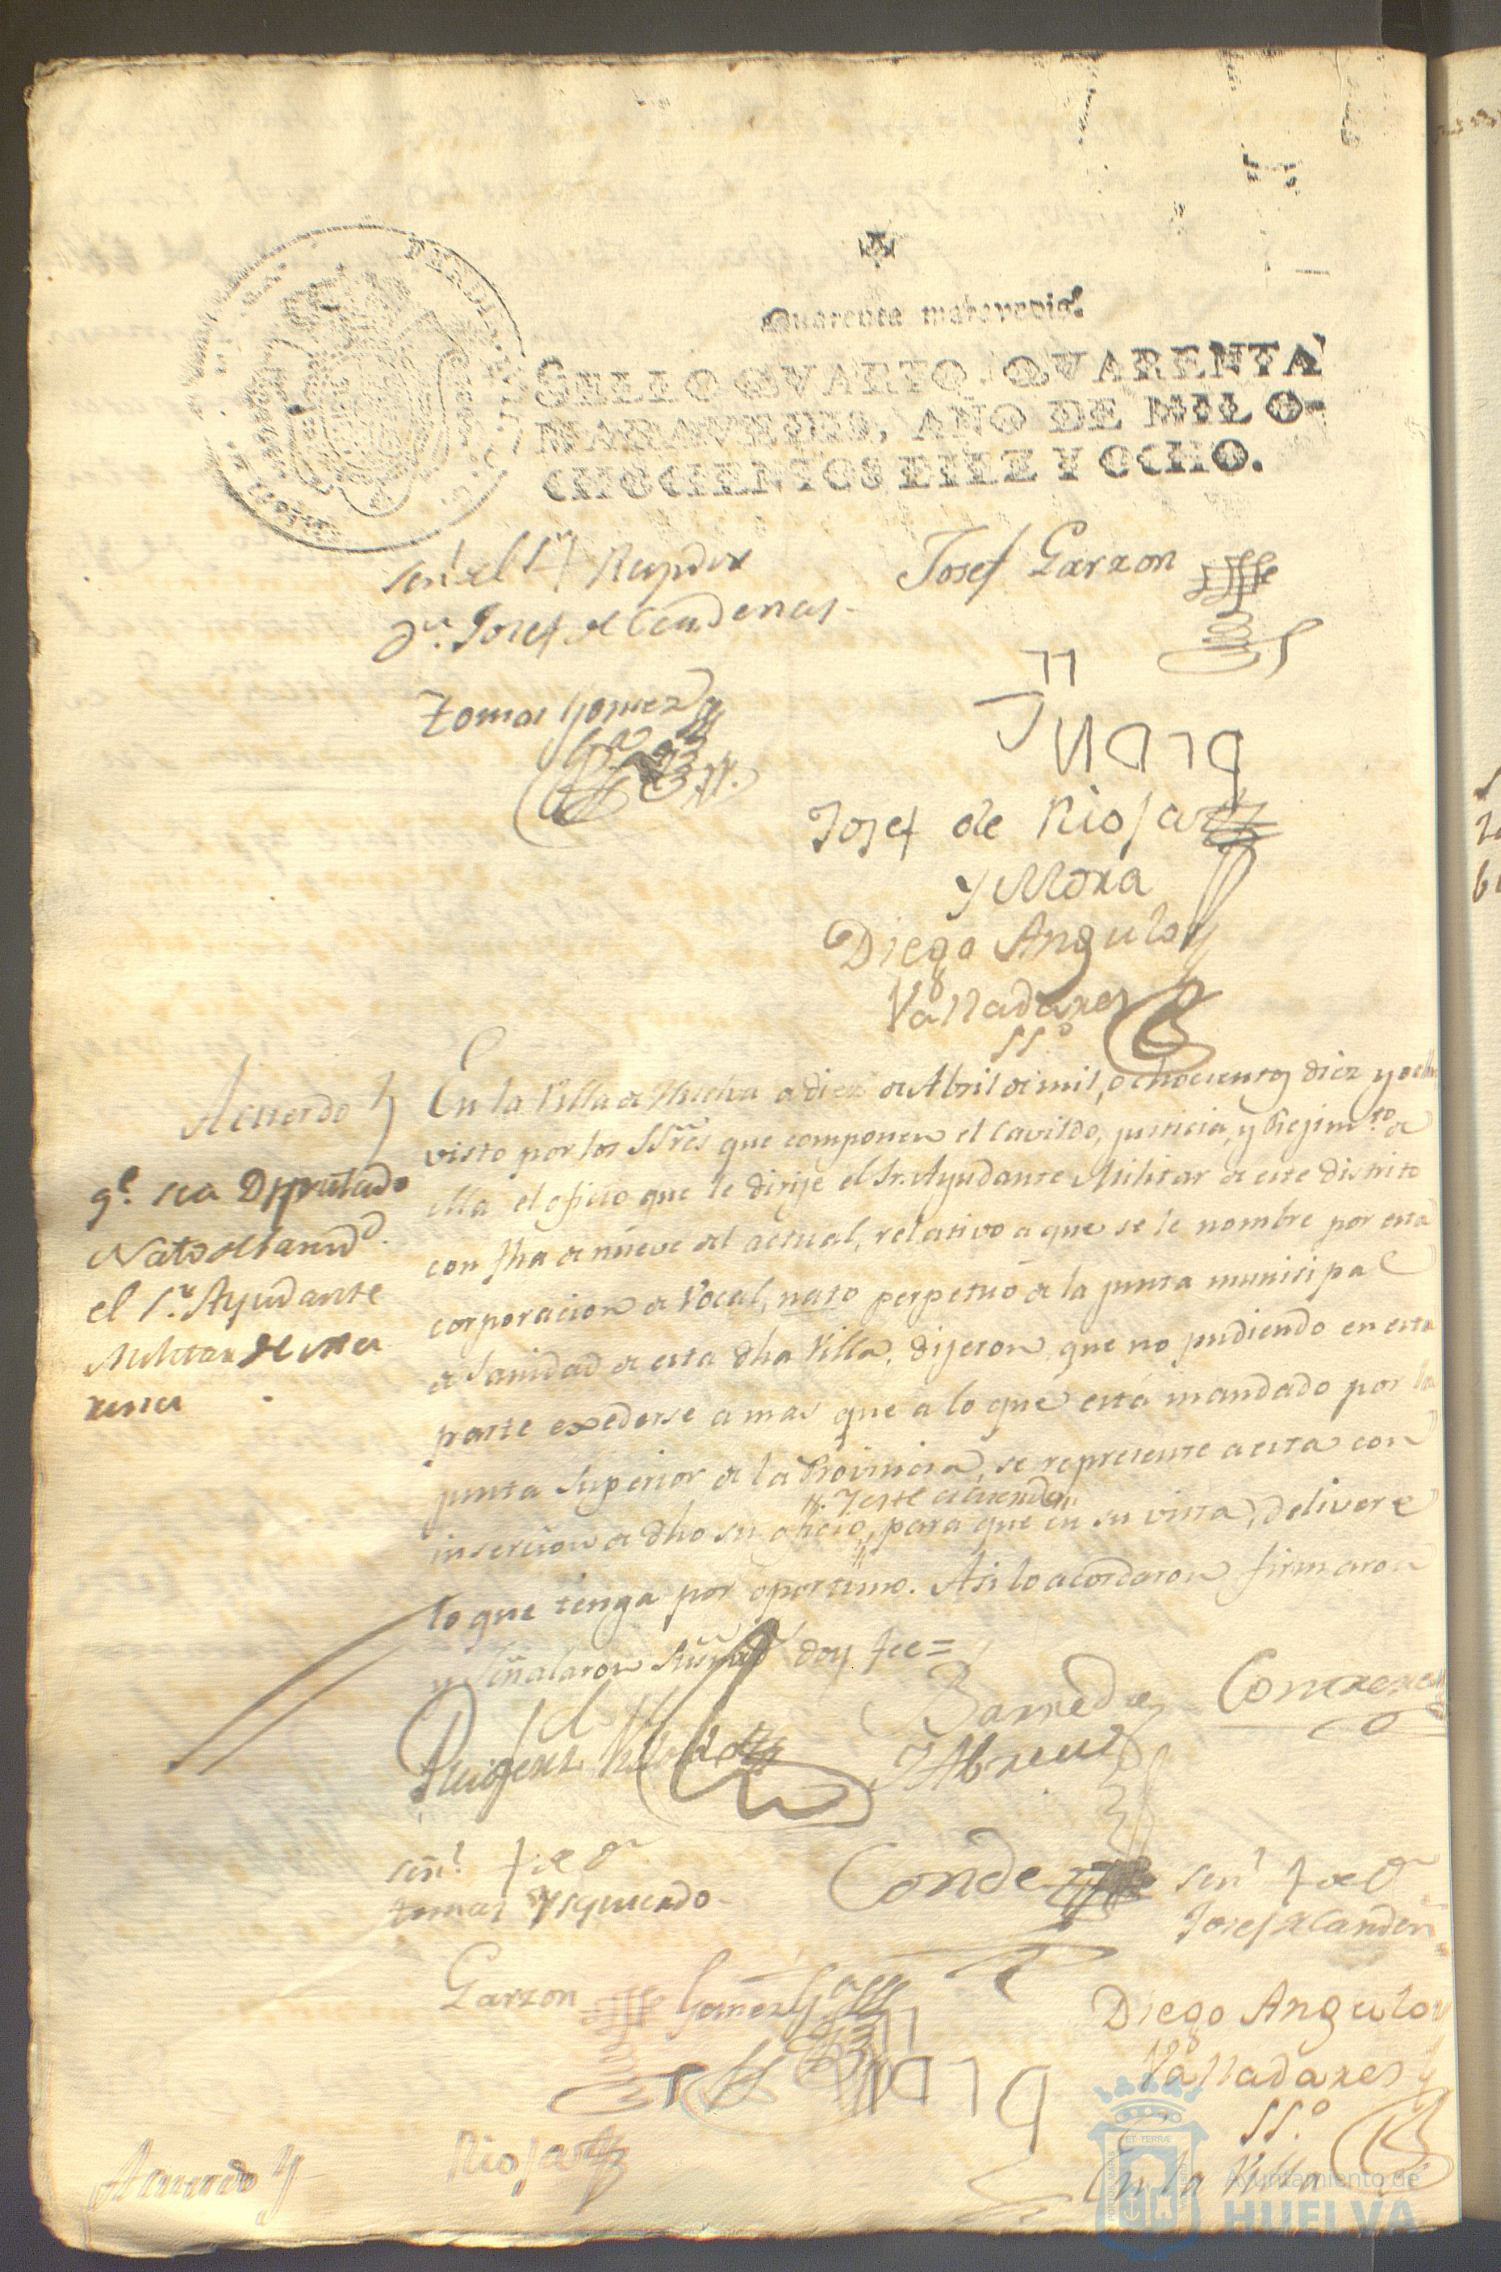 Quarenta maravedis.
SELLO QVARTO, QVARENTA
MARAVEDIS, AÑO DE MIL O-
CHOCIENTOS DIEZ Y OCHO.
Josef Garzon
señ.l del S.r Rexidor
D.n Josef de Cardenas
Tomas Gomez
Josef de Rioja
y Mora
Diego Angulo y
Valladares
SS.o
Acuerdo
q.e sea Diputado
Nato de Sanid.d
el S.r Ayudante
Militar de Ma
rina
En la Villa de Huelva a diez de Abril de mil, ochocientos diez y ocho
visto por los SS.res que componen el Cavildo, justicia, y Regim.to de
ella el oficio que le dirije el Sr. Ayudante Militar de este distrito
con fha de nueve del actual, relativo a que se le nombre por esta
corporacion de Vocal, nato perpetuo de la junta municipal
de Sanidad de esta dha Villa, dijeron, que no pudiendo en esta
parte exederse a mas que a lo que está mandado por la
junta Superior de la Provincia, se represente a esta con
y este acuerdo
insercion de dho su oficio, para que en su vista, delivere
lo que tenga por oportuno. Asi lo acordaron firmaron
y señalaron doy fee=
Barreda
Contreras
Y Abreu
señ.l de D.n
Tomas Ysquierdo
Conde
señ.l de D.n
Josef de Carden
Garzon
Gomez
Diego Angulo y
Valladares
SS.o
Rioja
Acuerdo
En la Villa
Ayuntamiento de
HUELVA